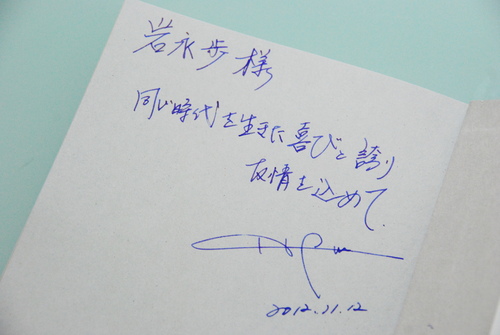 岩永歩様
同じ時代を生きた喜びと誇り
友情を込めて
2012.11.12